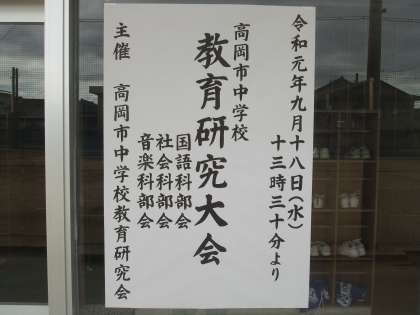 令和元年九月十八日(水)
十三時三十分より
高岡市中学校
教育研究大会
国語科部会
社会科部会
音楽科部会
主催 高岡市中学校教育研究会